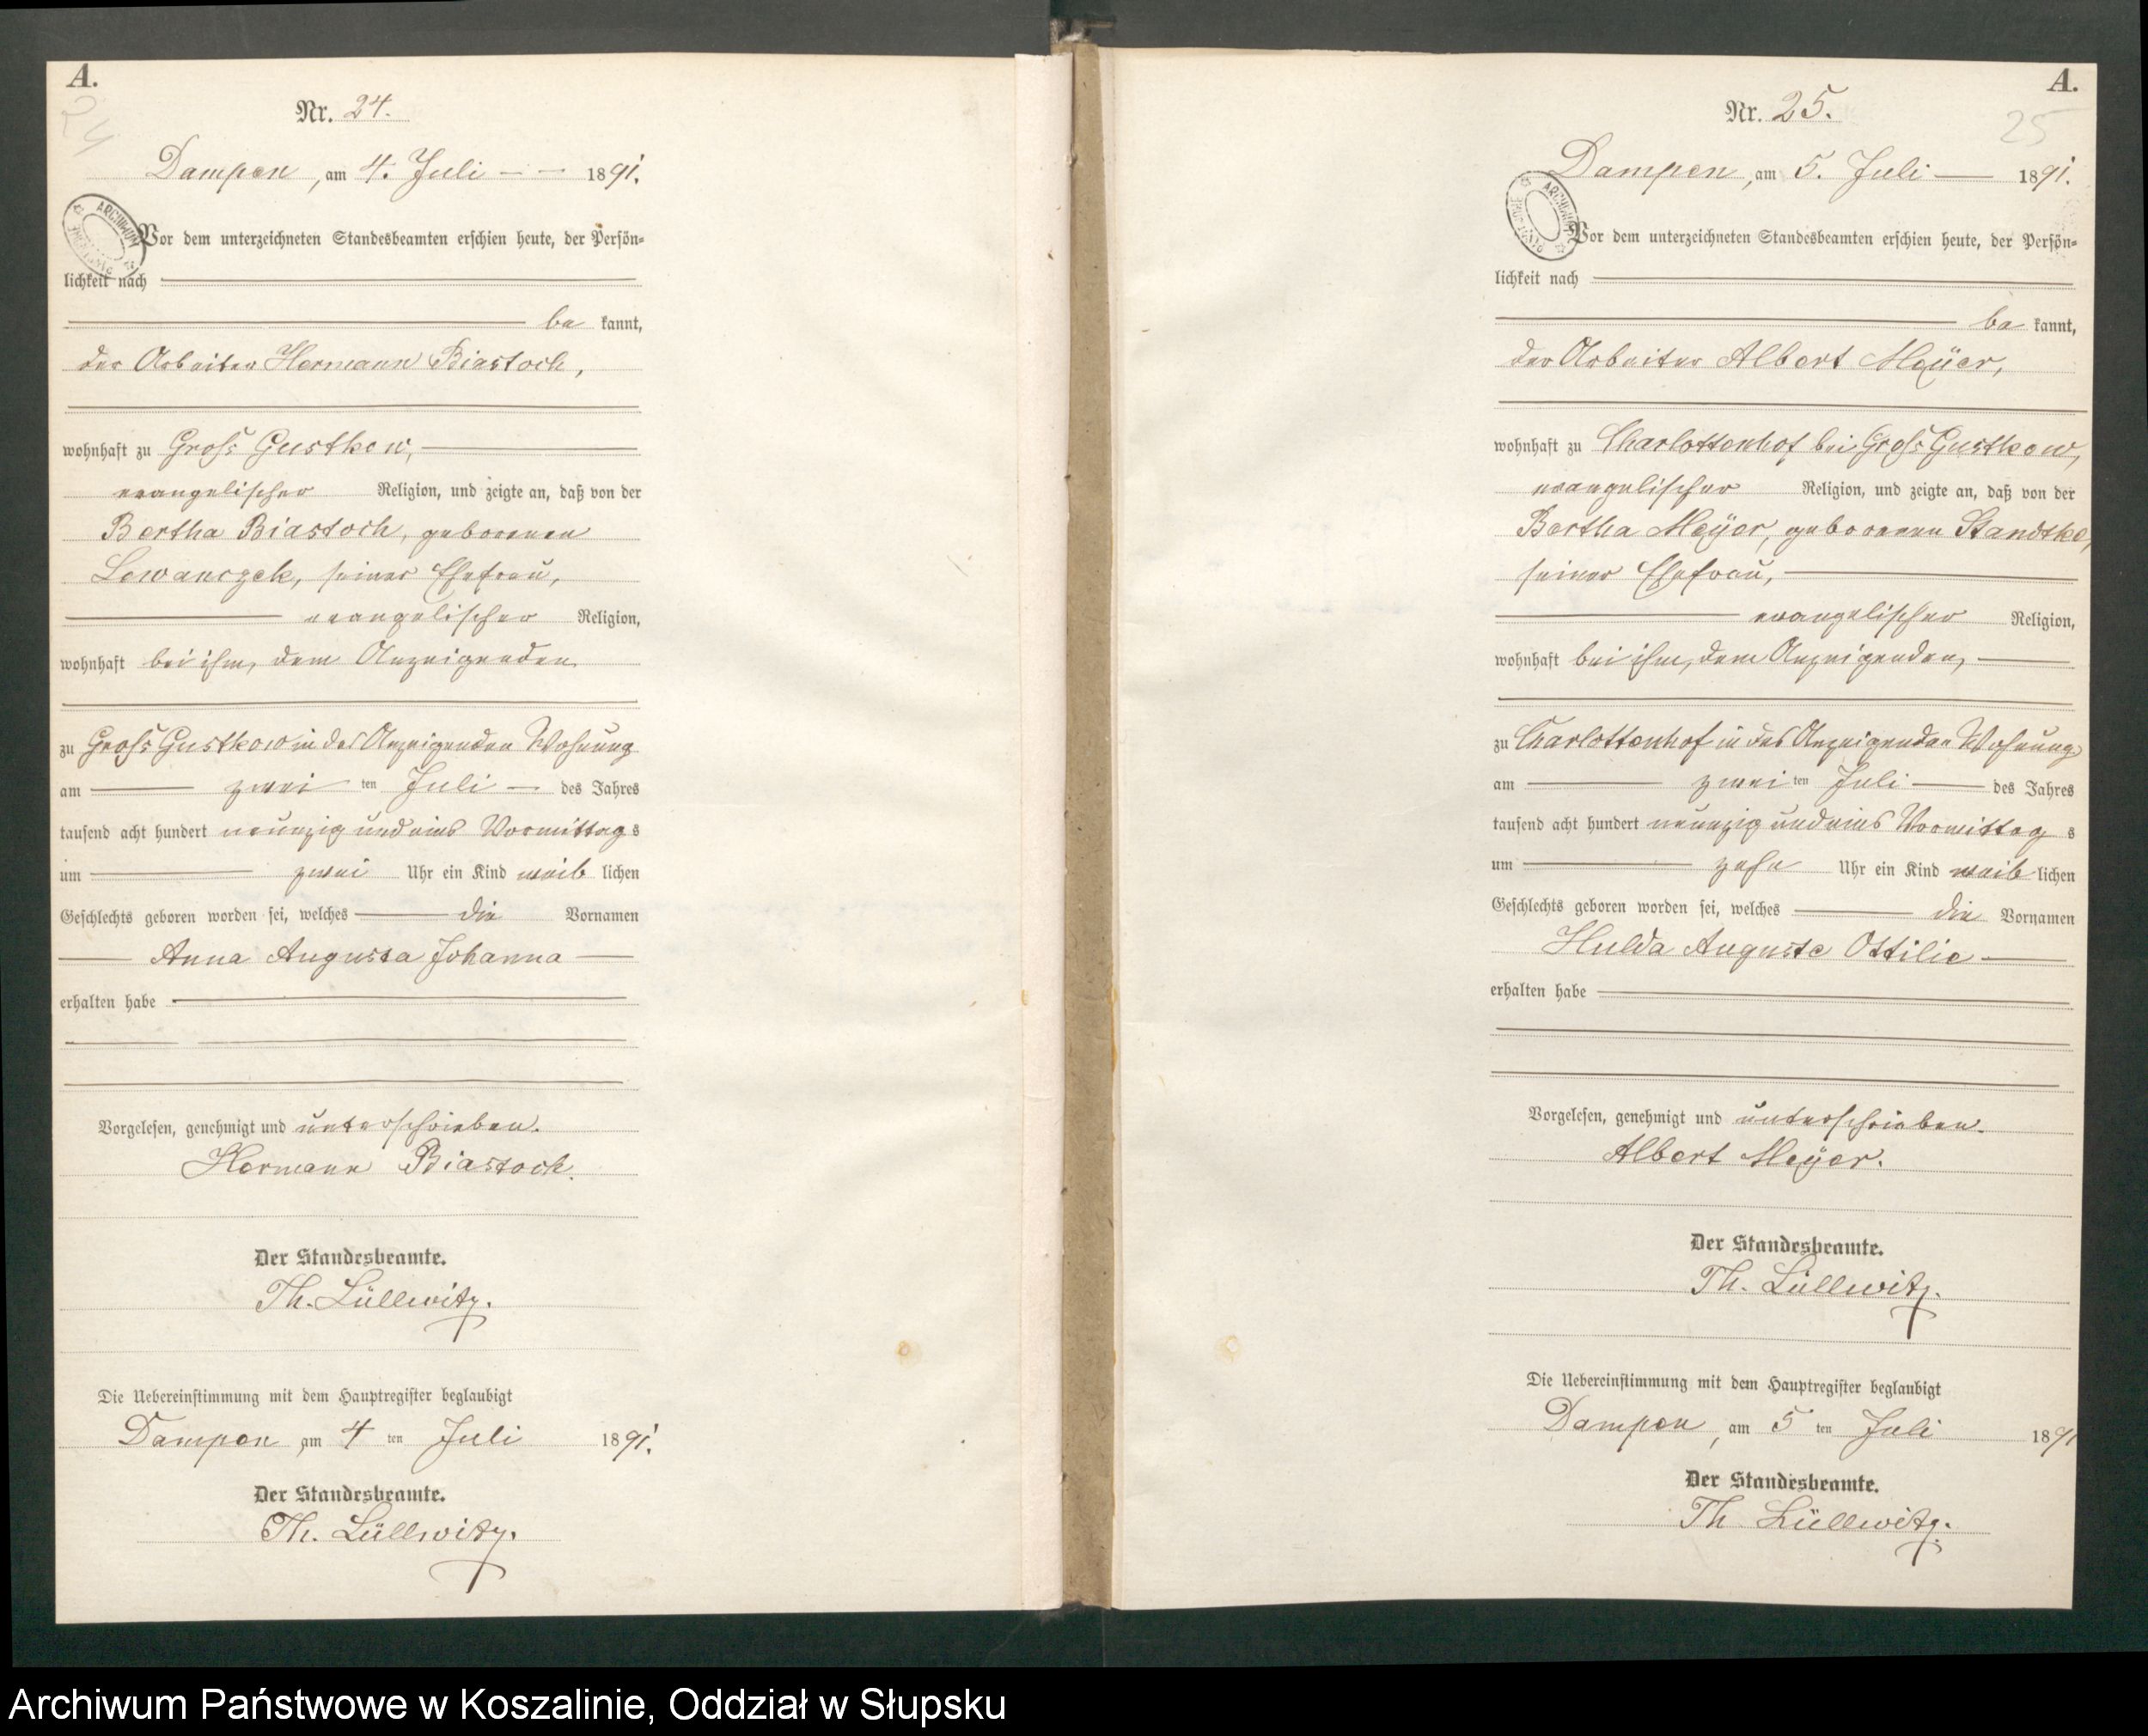 A.
24
Nr. 24.
Dampen, am 4. Juli 1891.
Vor dem unterzeichneten Standesbeamten erschien heute, der Persön-
lichkeit nach
be kannt,
der Arbeiter Hermann Biastoch,
wohnhaft zu Groß Gustkow,
evangelischer Religion, und zeigte an, daß von der
Bertha Biastoch, geborenen
Lewanczek, seiner Ehefrau,
evangelischer Religion,
wohnhaft bei ihm, dem Anzeigenden
zu Groß Gustkow in des Anzeigenden Wohnung
am zwei ten Juli des Jahres
tausend acht hundert neunzig und eins Vormittag s
um zwei Uhr ein Kind weib lichen
Geschlechts geboren worden sei, welches die Vornamen
Anna Augusta Johanna
erhalten habe
Vorgelesen, genehmigt und unterschrieben.
Hermann Biastoch.
Der Standesbeamte.
Th. Lüllwitz.
Die Uebereinstimmung mit dem Hauptregister beglaubigt
Dampen am 4 ten Juli 1891.
Der Standesbeamte.
Th. Lüllwitz.
A.
25
Nr. 25.
Dampen, am 5. Juli 1891.
Vor dem unterzeichneten Standesbeamten erschien heute, der Persön-
lichkeit nach
be kannt,
der Arbeiter Albert Meÿer,
wohnhaft zu Charlottenhof bei Groß Gustkow,
evangelischer Religion, und zeigte an, daß von der
Bertha Meÿer, geborenen Standtke,
seiner Ehefrau,
evangelischer Religion,
wohnhaft bei ihm, dem Anzeigenden,
zu Charlottenhof in des Anzeigenden Wohnung
am zwei ten Juli des Jahres
tausend acht hundert neunzig und eins Vormittag s
um zehn Uhr ein Kind weib lichen
Geschlechts geboren worden sei, welches die Vornamen
Hulda Auguste Ottilie
erhalten habe
Vorgelesen, genehmigt und unterschrieben.
Albert Meÿer.
Der Standesbeamte.
Th. Lüllwitz.
Die Uebereinstimmung mit dem Hauptregister beglaubigt
Dampen, am 5 ten Juli 1891
Der Standesbeamte.
Th. Lüllwitz.
Archiwum Państwowe w Koszalinie, Oddział w Słupsku